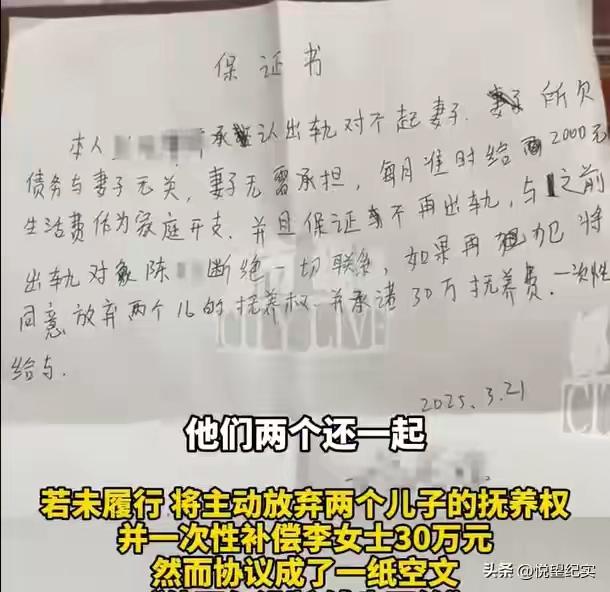 保证书
本人 承认出轨对不起妻子. 所欠
债务与妻子无关, 妻子无需承担, 每月准时给 2000元
生活费作为家庭开支. 并且保证 不再出轨, 与 之前
出轨对象陈 断绝一切联系, 如果再 犯 将
同意放弃两个儿的抚养权. 并承诺30万抚养费. 一次性
给与.
CITY LIVE
2025.3.21
他们两个还一起
若未履行 将主动放弃两个儿子的抚养权
并一次性补偿李女士30万元
然而协议成了一纸空文
头条 @悦望纪实